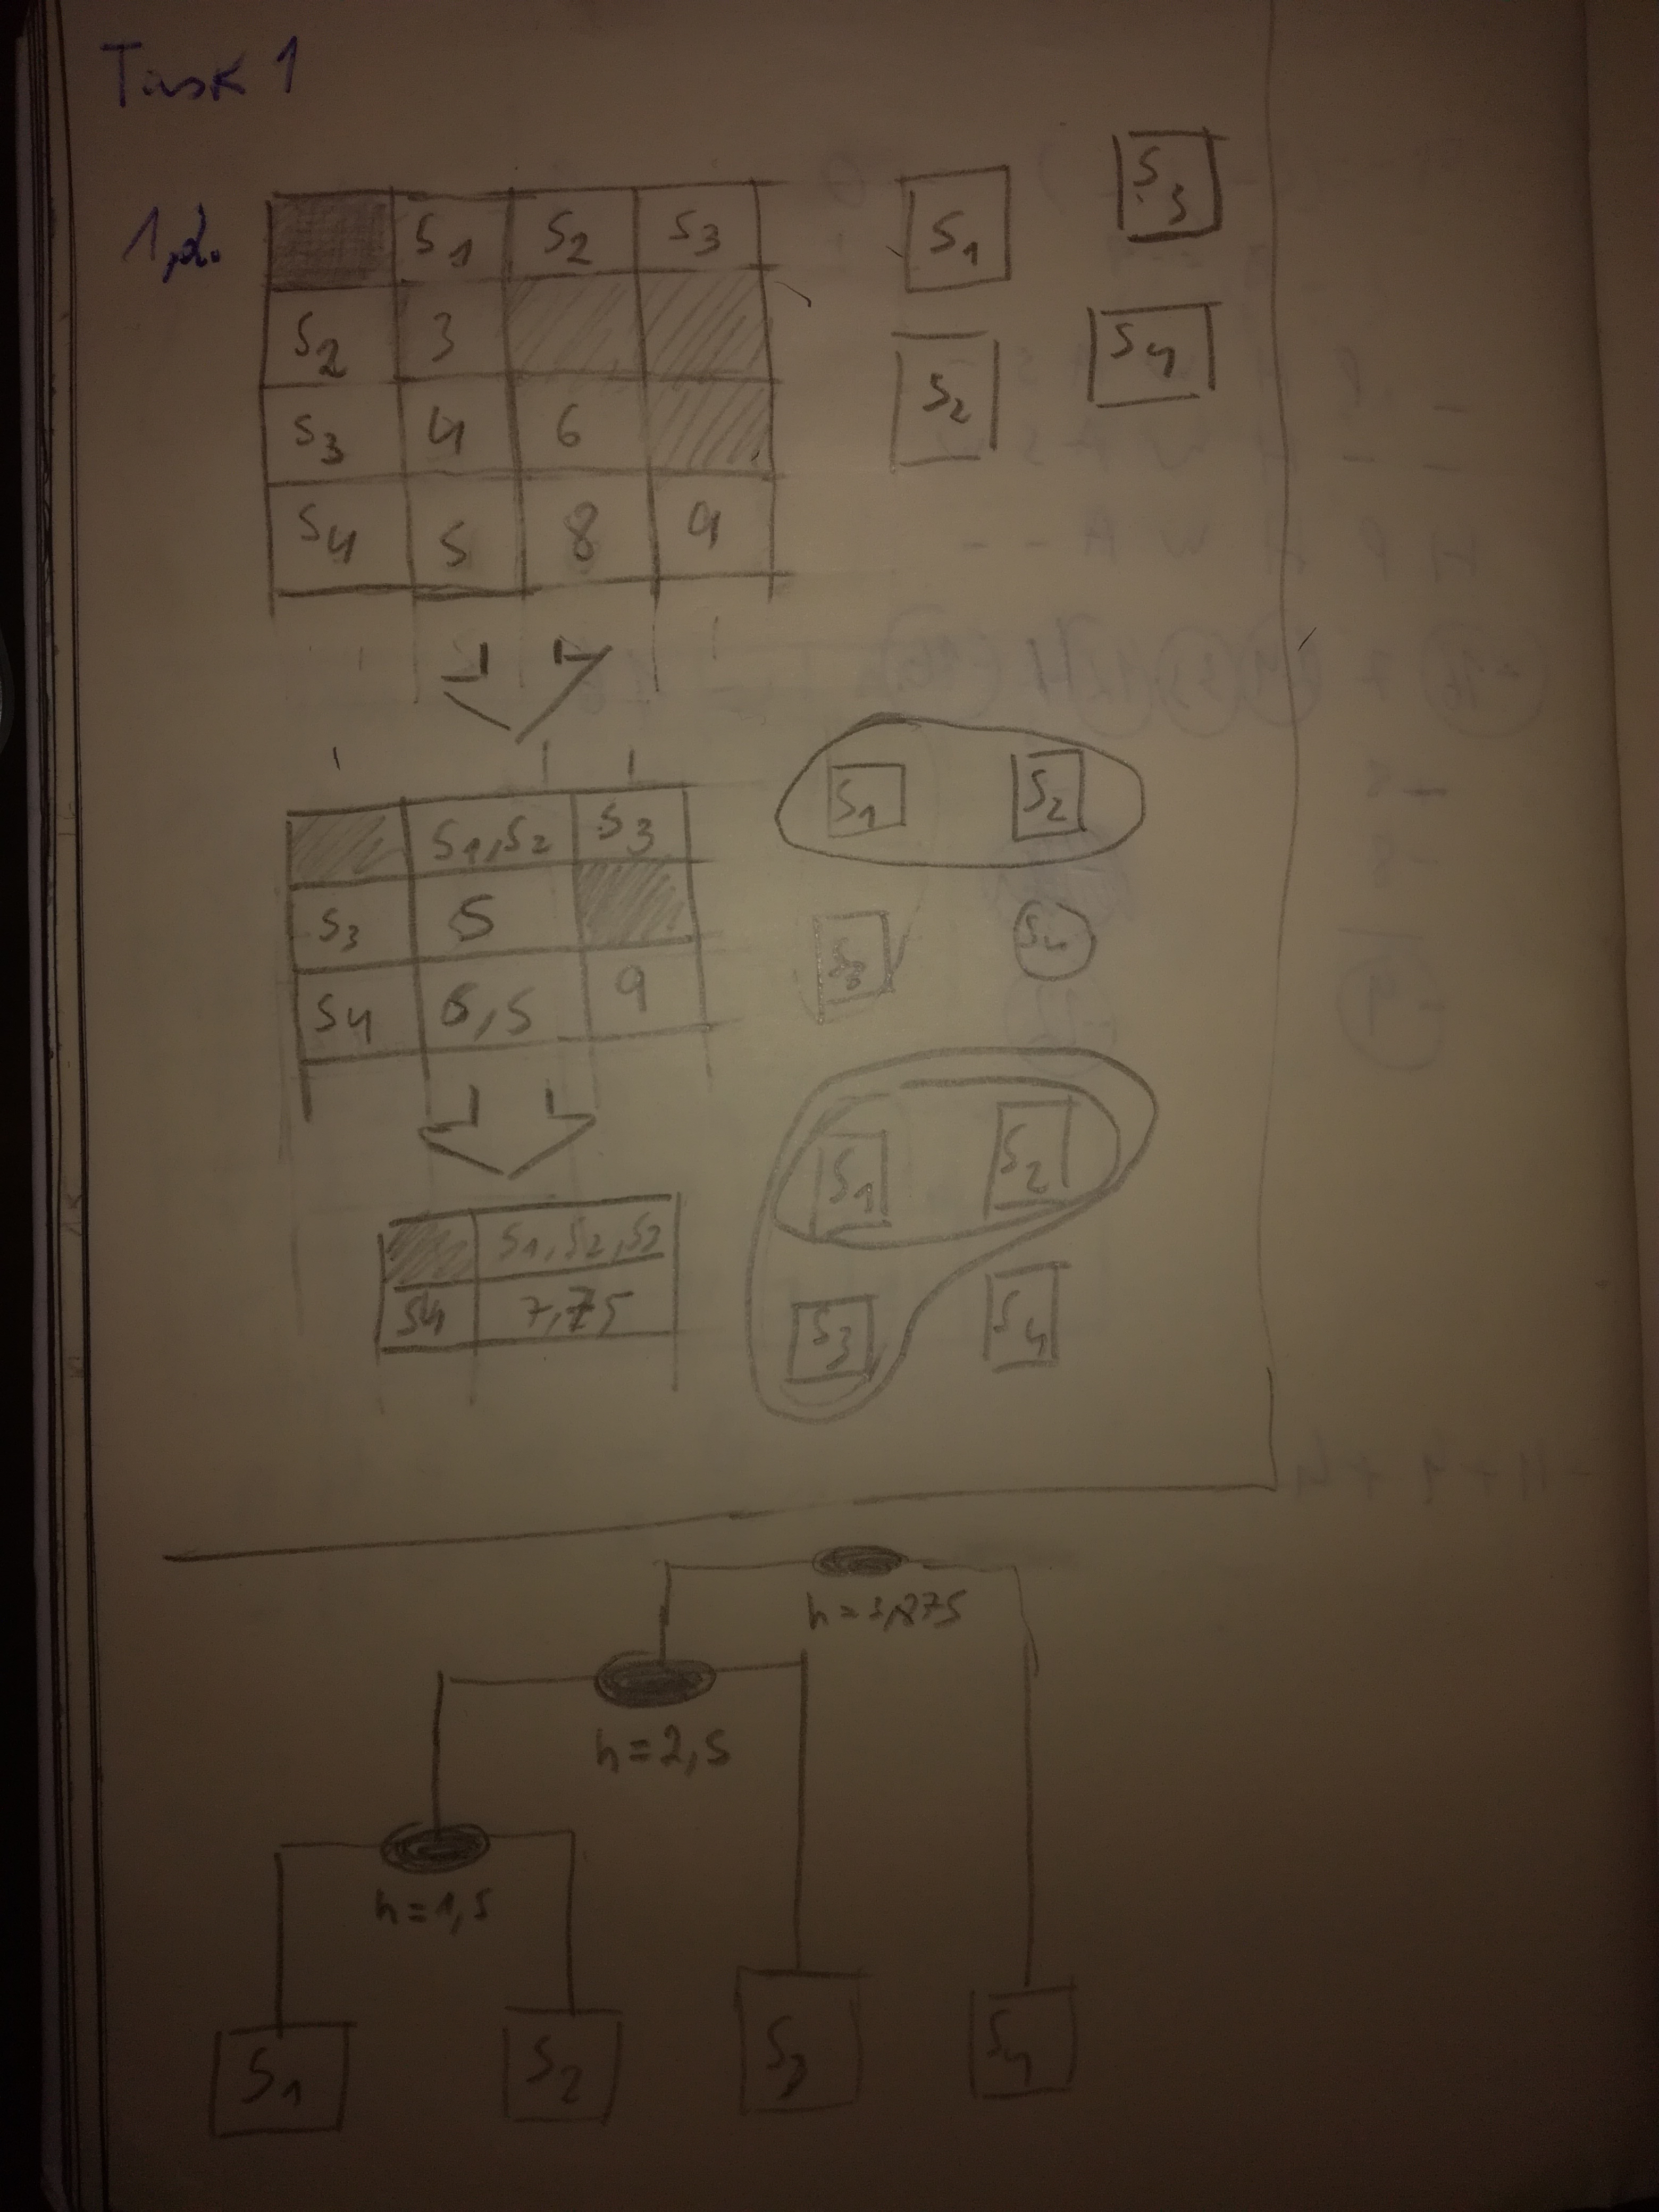 Task 1
1,2.
S1 S2 S3
S2 3
S3 4 6
S4 5 8 9
S1 S3
S2 S4
S1,S2 S3
S3 5
S4 6,5 9
S1 S2
S3 S4
S1,S2,S3
S4 7,75
S1 S2
S3 S4
h=3,875
h=2,5
h=1,5
S1 S2 S3 S4